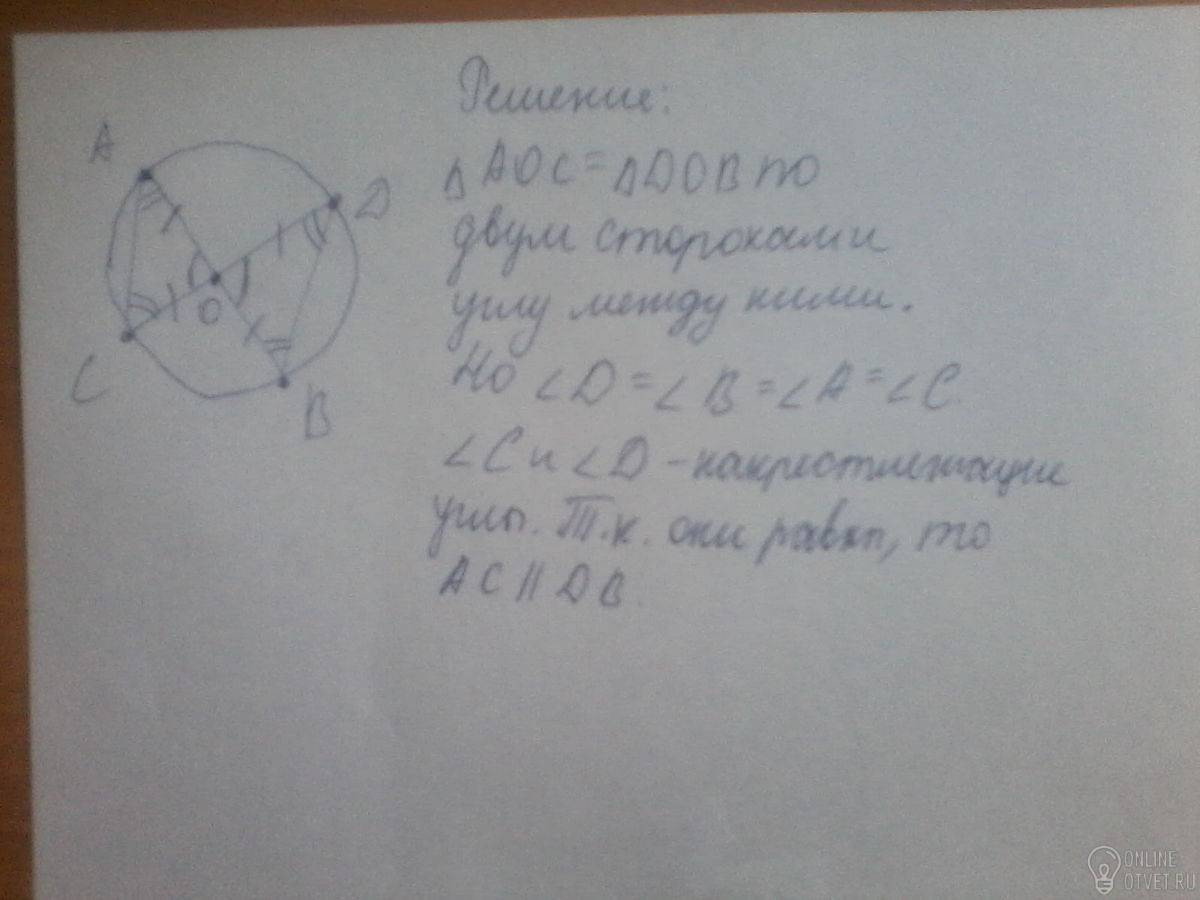 Решение:
△AOC=△DOB по
двум сторонами
углу между ними.
Но ∠D=∠B=∠A=∠C.
∠C и ∠D-накрестлежащие
углы. Т.к. они равны, то
AC||DB.
A
D
O
C
B
ONLINE
OTVET.RU